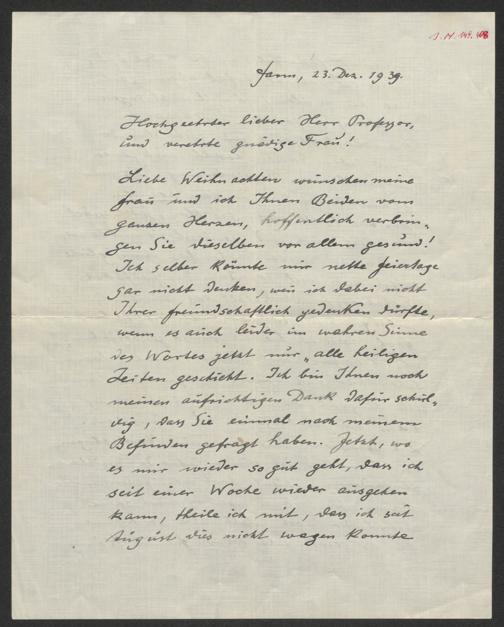 I.N. 149.408
Jann, 23. Dez. 1939.
Hochgeehrter lieber Herr Professor,
und verehrte gnädige Frau!
Liebe Weihnachten wünschen meine
Frau und ich Ihnen Beiden vom
ganzen Herzen, hoffentlich verbrin„
gen Sie dieselben vor allem gesund!
Ich selber könnte mir nette Feiertage
gar nicht denken, wen ich dabei nicht
Ihrer freundschaftlich gedenken dürfte,
wenn es auch leider im wahren Sinne
des Wortes jetzt nur „alle heiligen
Zeiten geschieht. Ich bin Ihnen noch
meinen aufrichtigen Dank dafür schul„
dig, dass Sie einmal nach meinem
Befinden gefragt haben. Jetzt, wo
es mir wieder so gut geht, dass ich
seit einer Woche wieder ausgehen
kann, theile ich mit, dass ich seit
August dies nicht wagen konnte